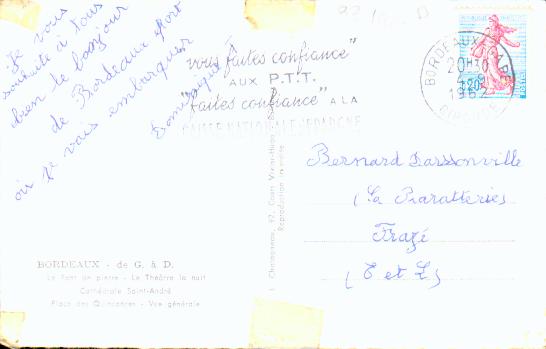 Je vous
souhaite à tous
bien le bonjour
de Bordeaux Port
où je vais embarquer
Dominique
"vous faites confiance"
AUX P.T.T.
"faites confiance" A LA
CAISSE NATIONALE D'EPARGNE
BORDEAUX GARE
20H30
196
GIRONDE
0,20
Bernard Darssonville
(La Baratteries
Frazé
(E et L)
BORDEAUX - de G. à D.
Le Pont en pierre - Le Théâtre la nuit
Cathédrale Saint-André
Place des Quinconces - Vue générale
Reproduction interdite